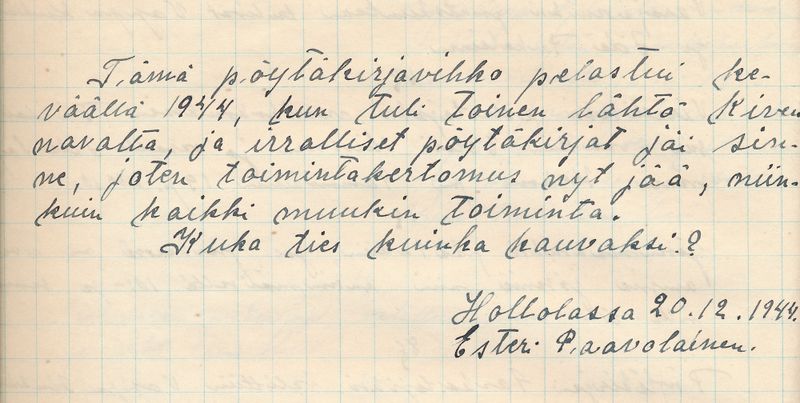 Tämä pöytäkirjavihko pelastui ke-
väällä 1944, kun tuli toinen lähtö Kiven
navalta, ja irralliset pöytäkirjat jäi sin-
ne, joten toimintakertomus nyt jää, niin-
kuin kaikki muukin toiminta.
Kuka ties kuinka kauvaksi?
Hollolassa 20.12.1944.
Esteri Paavolainen.